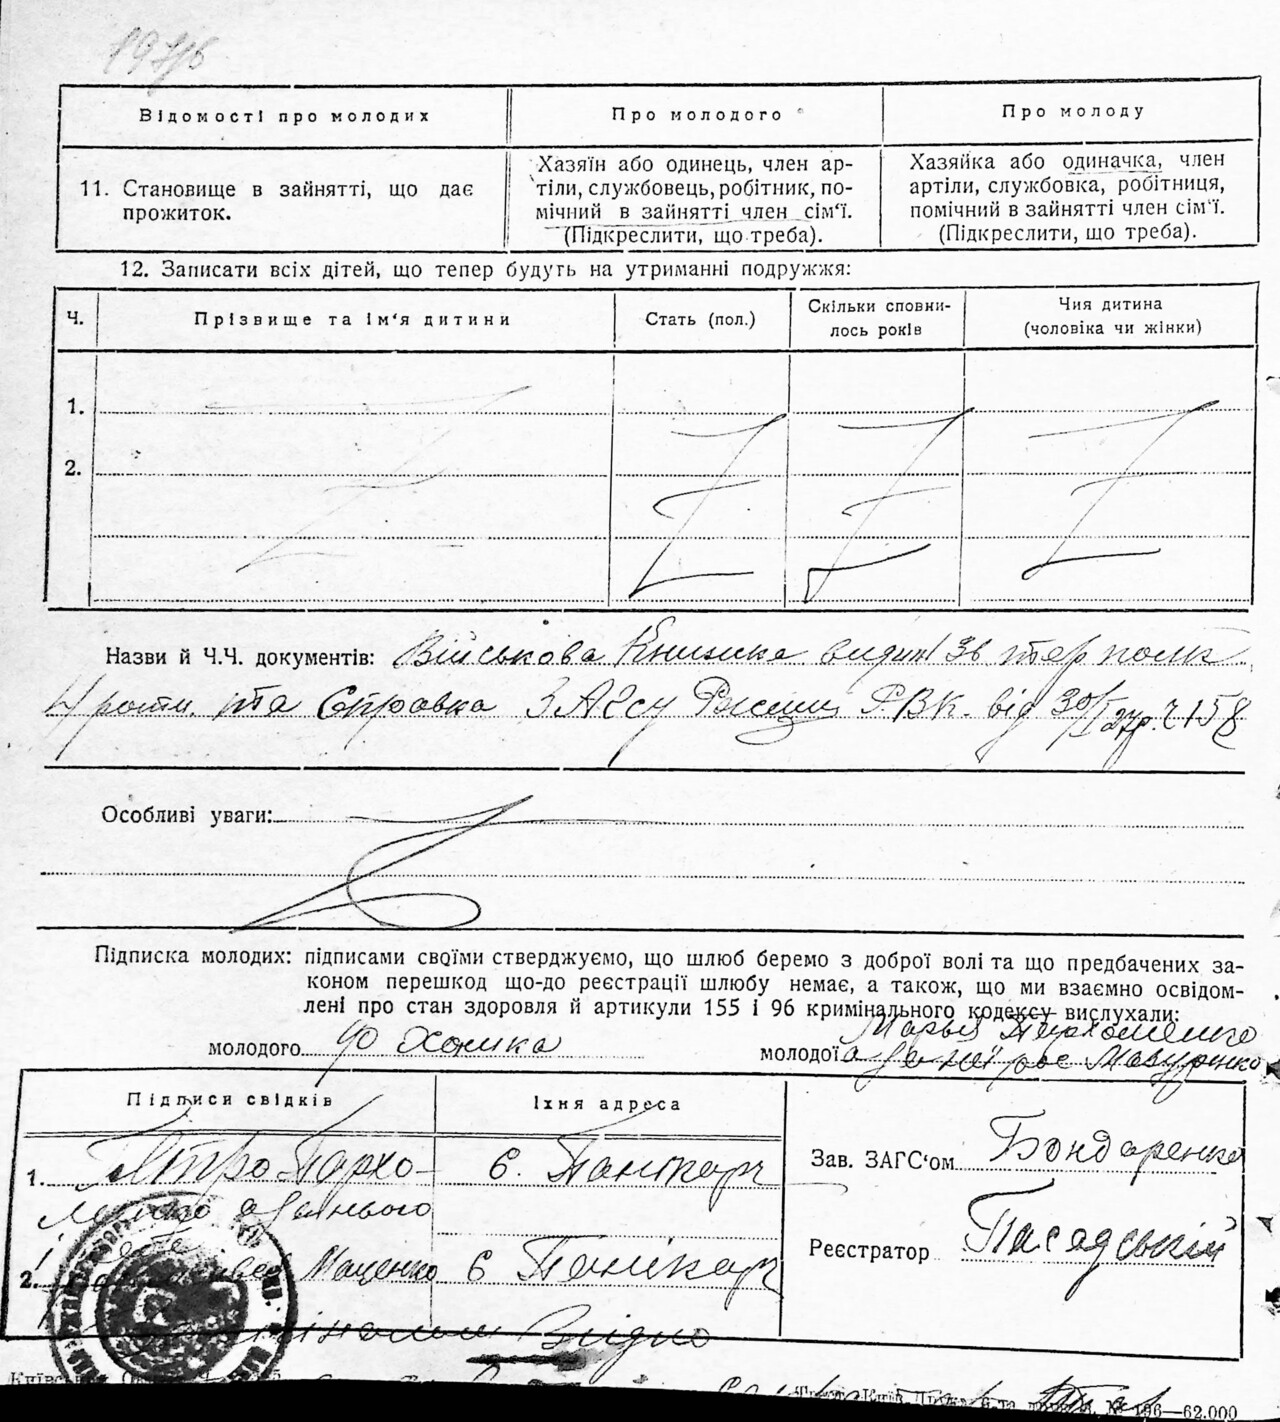 197/6
Відомості про молодих
Про молодого
Про молоду
11. Становище в зайнятті, що дає прожиток.
Хазяїн або одинець, член ар-
тіли, службовець, робітник, по-
мічний в зайнятті член сім'ї.
(Підкреслити, що треба).
Хазяйка або одиначка, член
артіли, службовка, робітниця,
помічний в зайнятті член сім'ї.
(Підкреслити, що треба).
12. Записати всіх дітей, що тепер будуть на утриманні подружжя:
Ч.
Прізвище та ім'я дитини
Стать (пол.)
Скільки сповни-
лось років
Чия дитина
(чоловіка чи жінки)
1.
2.
Назви й Ч.Ч. документів: Військова Книжка видан 36 тер полк
4 роти та Справка ЗАГСу Ржищ РВК. від 30/I 27р. Ч 158
Особливі уваги:
Підписка молодих: підписами своїми стверджуємо, що шлюб беремо з доброї волі та що предбачених за-
коном перешкод що-до реєстрації шлюбу немає, а також, що ми взаємно освідом-
лені про стан здоровля й артикули 155 і 96 кримінального кодексу вислухали:
молодого Хомка
Марья Пархоменко
молодої а за неї рос Мазуренко
Підписи свідків
Їхня адреса
1. Петро Пархо-
менко а за нього
с. Панікарч
2. Маценко
с Панікарч
Зав. ЗАГС'ом Бондаренко
Реєстратор Пасадський
Згідно
№ 196—62.000